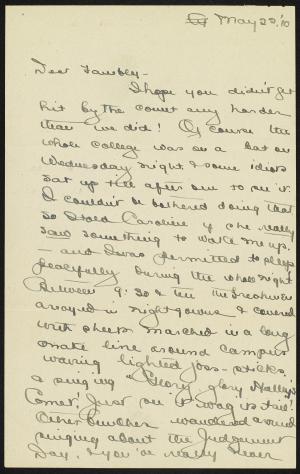 May 20, '10
Dear Tansley -
I hope you didn't get
hit by the comet any harder
than we did! Of course the
whole college was on a bat on
Wednesday night & some idiots
sat up till after one to see it.
I couldn't be bothered doing that
so I told Caroline if she really
saw something to wake me up.
- and I was permitted to sleep
peacefully during the whole night
Between 9.30 & ten the Freshmen
arrayed in nightgowns & covered
with sheets marched in a long
snake line around campus
waving lighted joss-sticks,
& singing "Glory, glory Halley's
Comet! Just see it wag its tail!
Other bunches wandered around
singing about the Judgement
Day, & you've really never